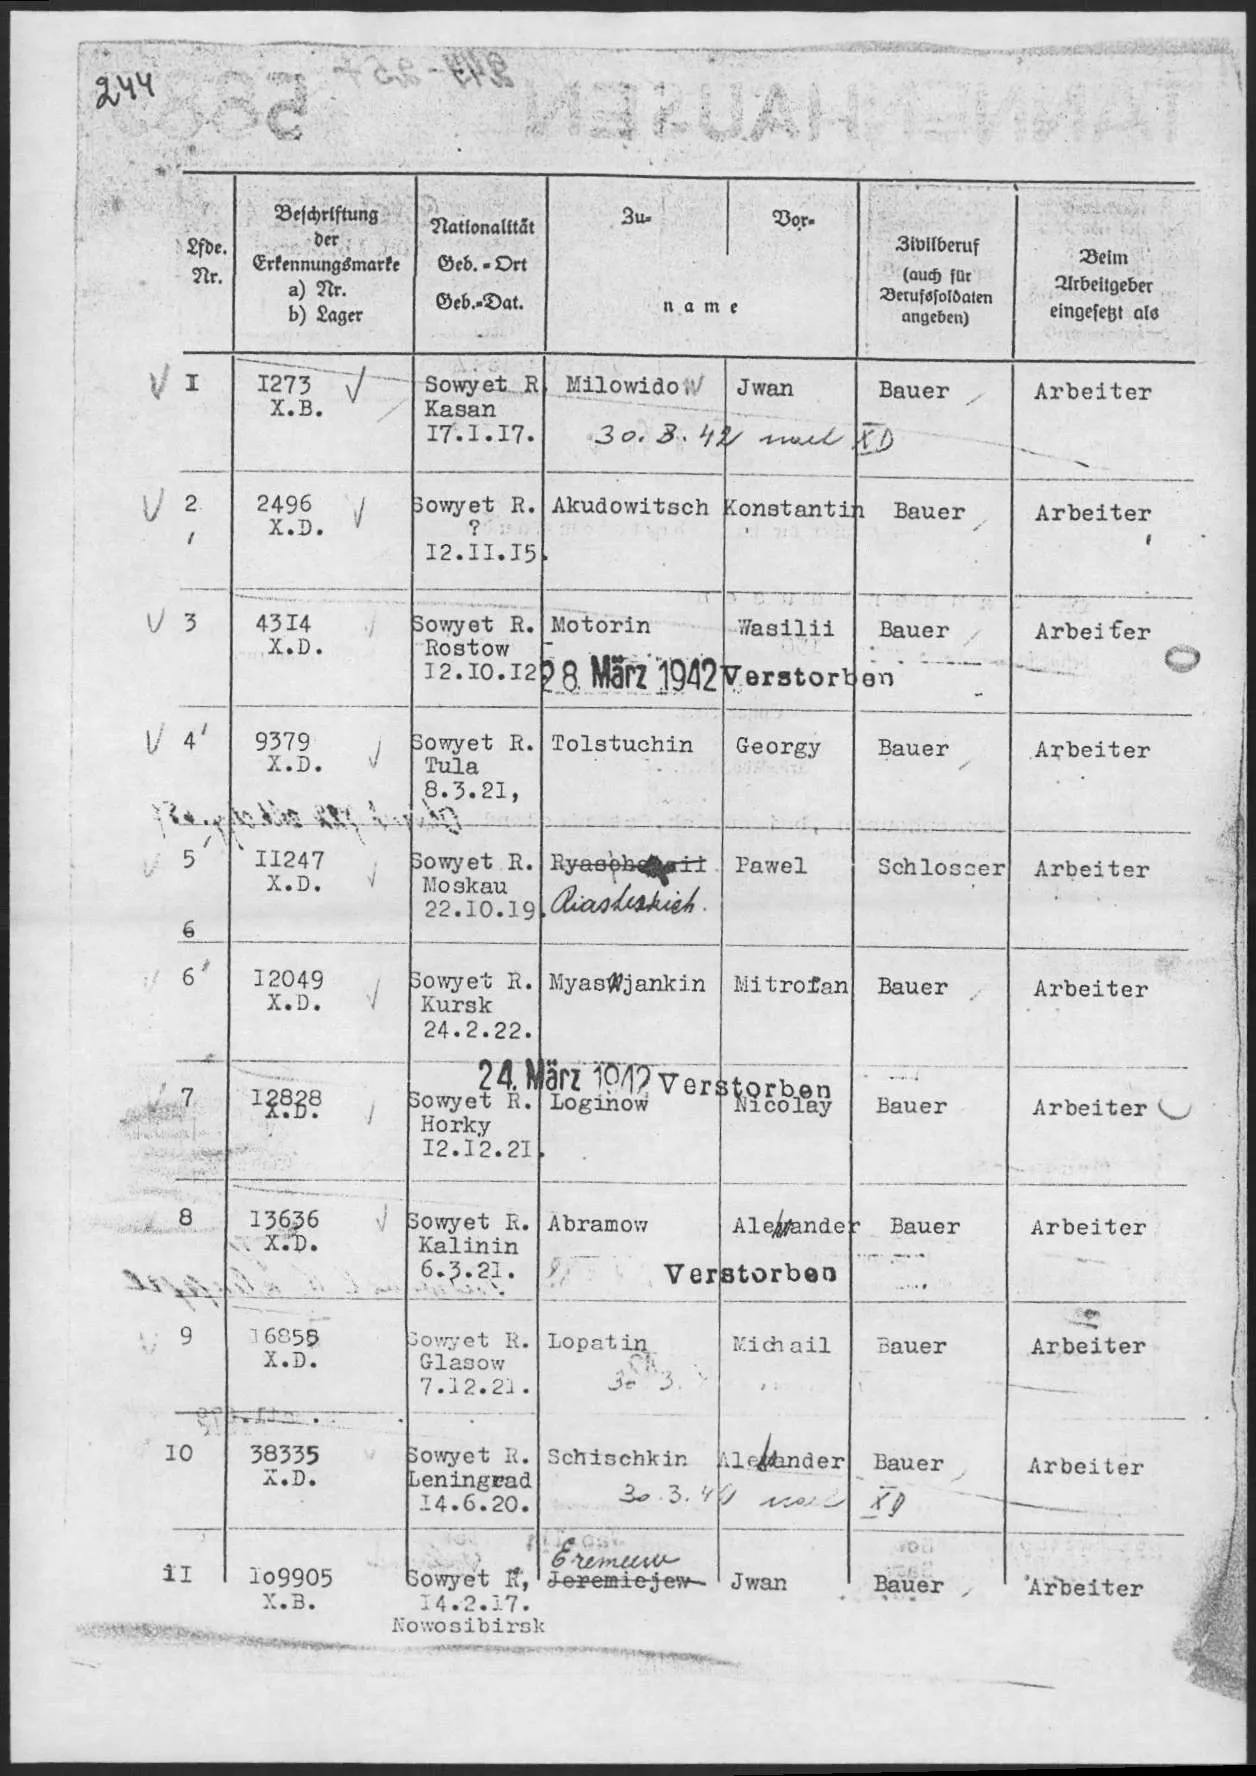 244
Lfde. Nr.
Beschriftung der Erkennungsmarke a) Nr. b) Lager
Nationalität Geb.-Ort Geb.-Dat.
Zu- Vor-
name
Zivilberuf (auch für Berufssoldaten angeben)
Beim Arbeitgeber eingesetzt als
I I273 Sowyet R. Milowidow Jwan Bauer Arbeiter
X.B. Kasan
I7.I.I7. 30.3.42 nach XD
2 2496 Sowyet R. Akudowitsch Konstantin Bauer Arbeiter
X.D. ?
I2.II.I5.
3 43I4 Sowyet R. Motorin Wasilii Bauer Arbeiter
X.D. Rostow
I2.IO.I2 28. März 1942 Verstorben
4 9379 Sowyet R. Tolstuchin Georgy Bauer Arbeiter
X.D. Tula
8.3.2I,
5 II247 Sowyet R. Pawel Schlosser Arbeiter
X.D. Moskau
22.IO.I9.
6
6 I2049 Sowyet R. Myasnjankin Mitrofan Bauer Arbeiter
X.D. Kursk
24.2.22.
24. März 1942 Verstorben
7 I2828 Sowyet R. Loginow Nicolay Bauer Arbeiter
X.D. Horky
I2.I2.2I.
8 I3636 Sowyet R. Abramow Alexander Bauer Arbeiter
X.D. Kalinin
6.3.2I. Verstorben
9 I6858 Sowyet R. Lopatin Michail Bauer Arbeiter
X.D. Glasow
7.I2.2I. 30 3.
IO 38335 Sowyet R. Schischkin Alexander Bauer Arbeiter
X.D. Leningrad
I4.6.20. 30.3.42 nach XD
Eremeew
II Io9905 Sowyet R, Jeremiejew Jwan Bauer Arbeiter
X.B. I4.2.I7.
Nowosibirsk